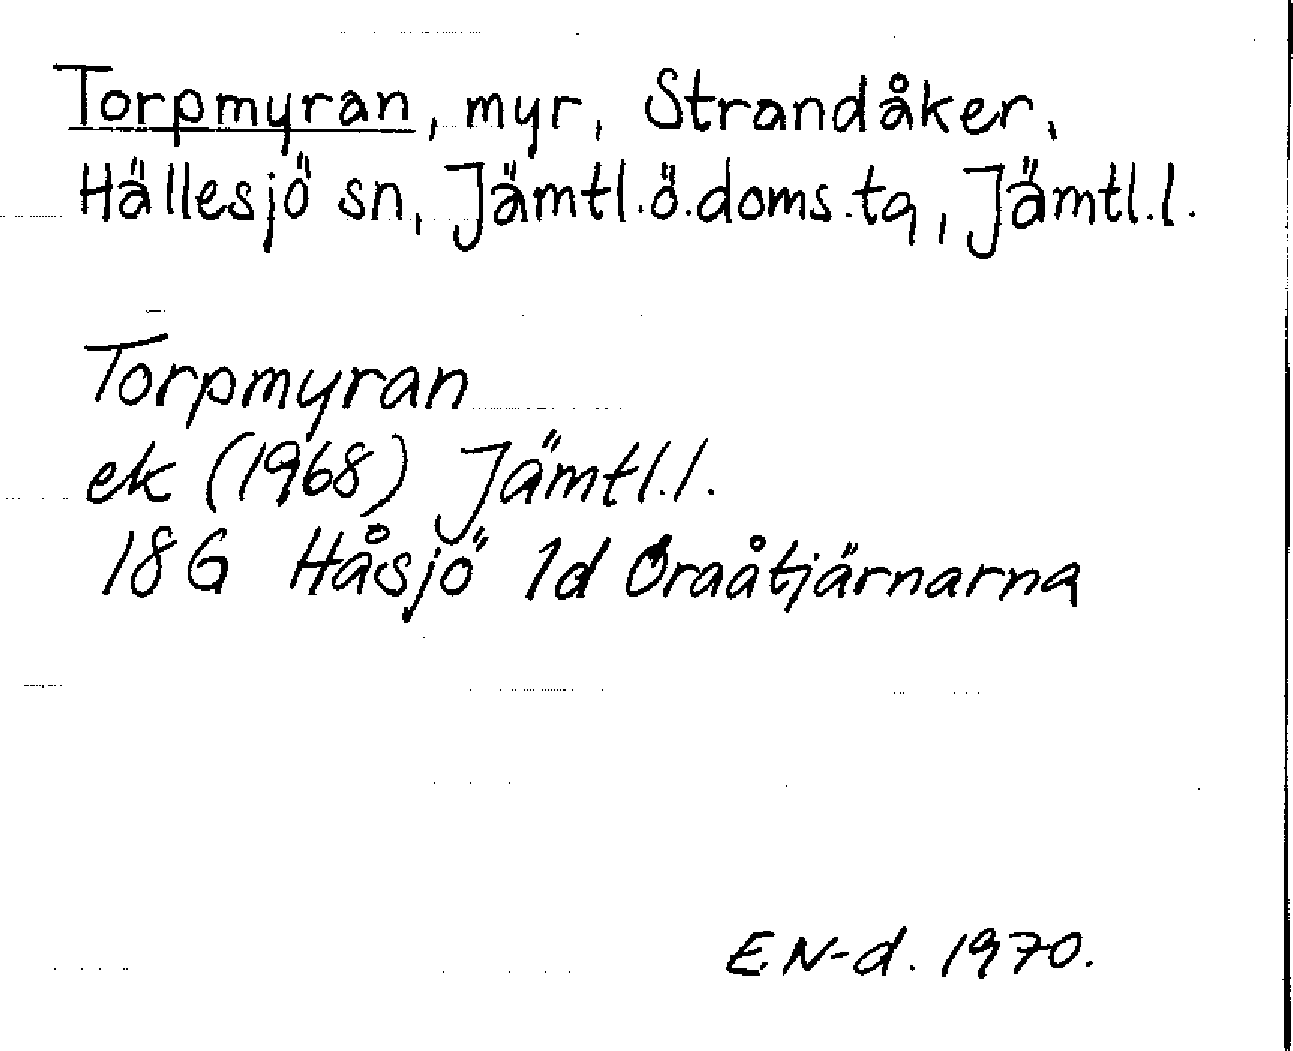 Torpmyran, myr, Strandåker,
Hällesjö sn, Jämtl.ö.doms.tq, Jämtl.l.
Torpmyran
ek (1968) Jämtl.l.
18G Håsjö 1d Oraåtjärnarna
E.N-d. 1970.